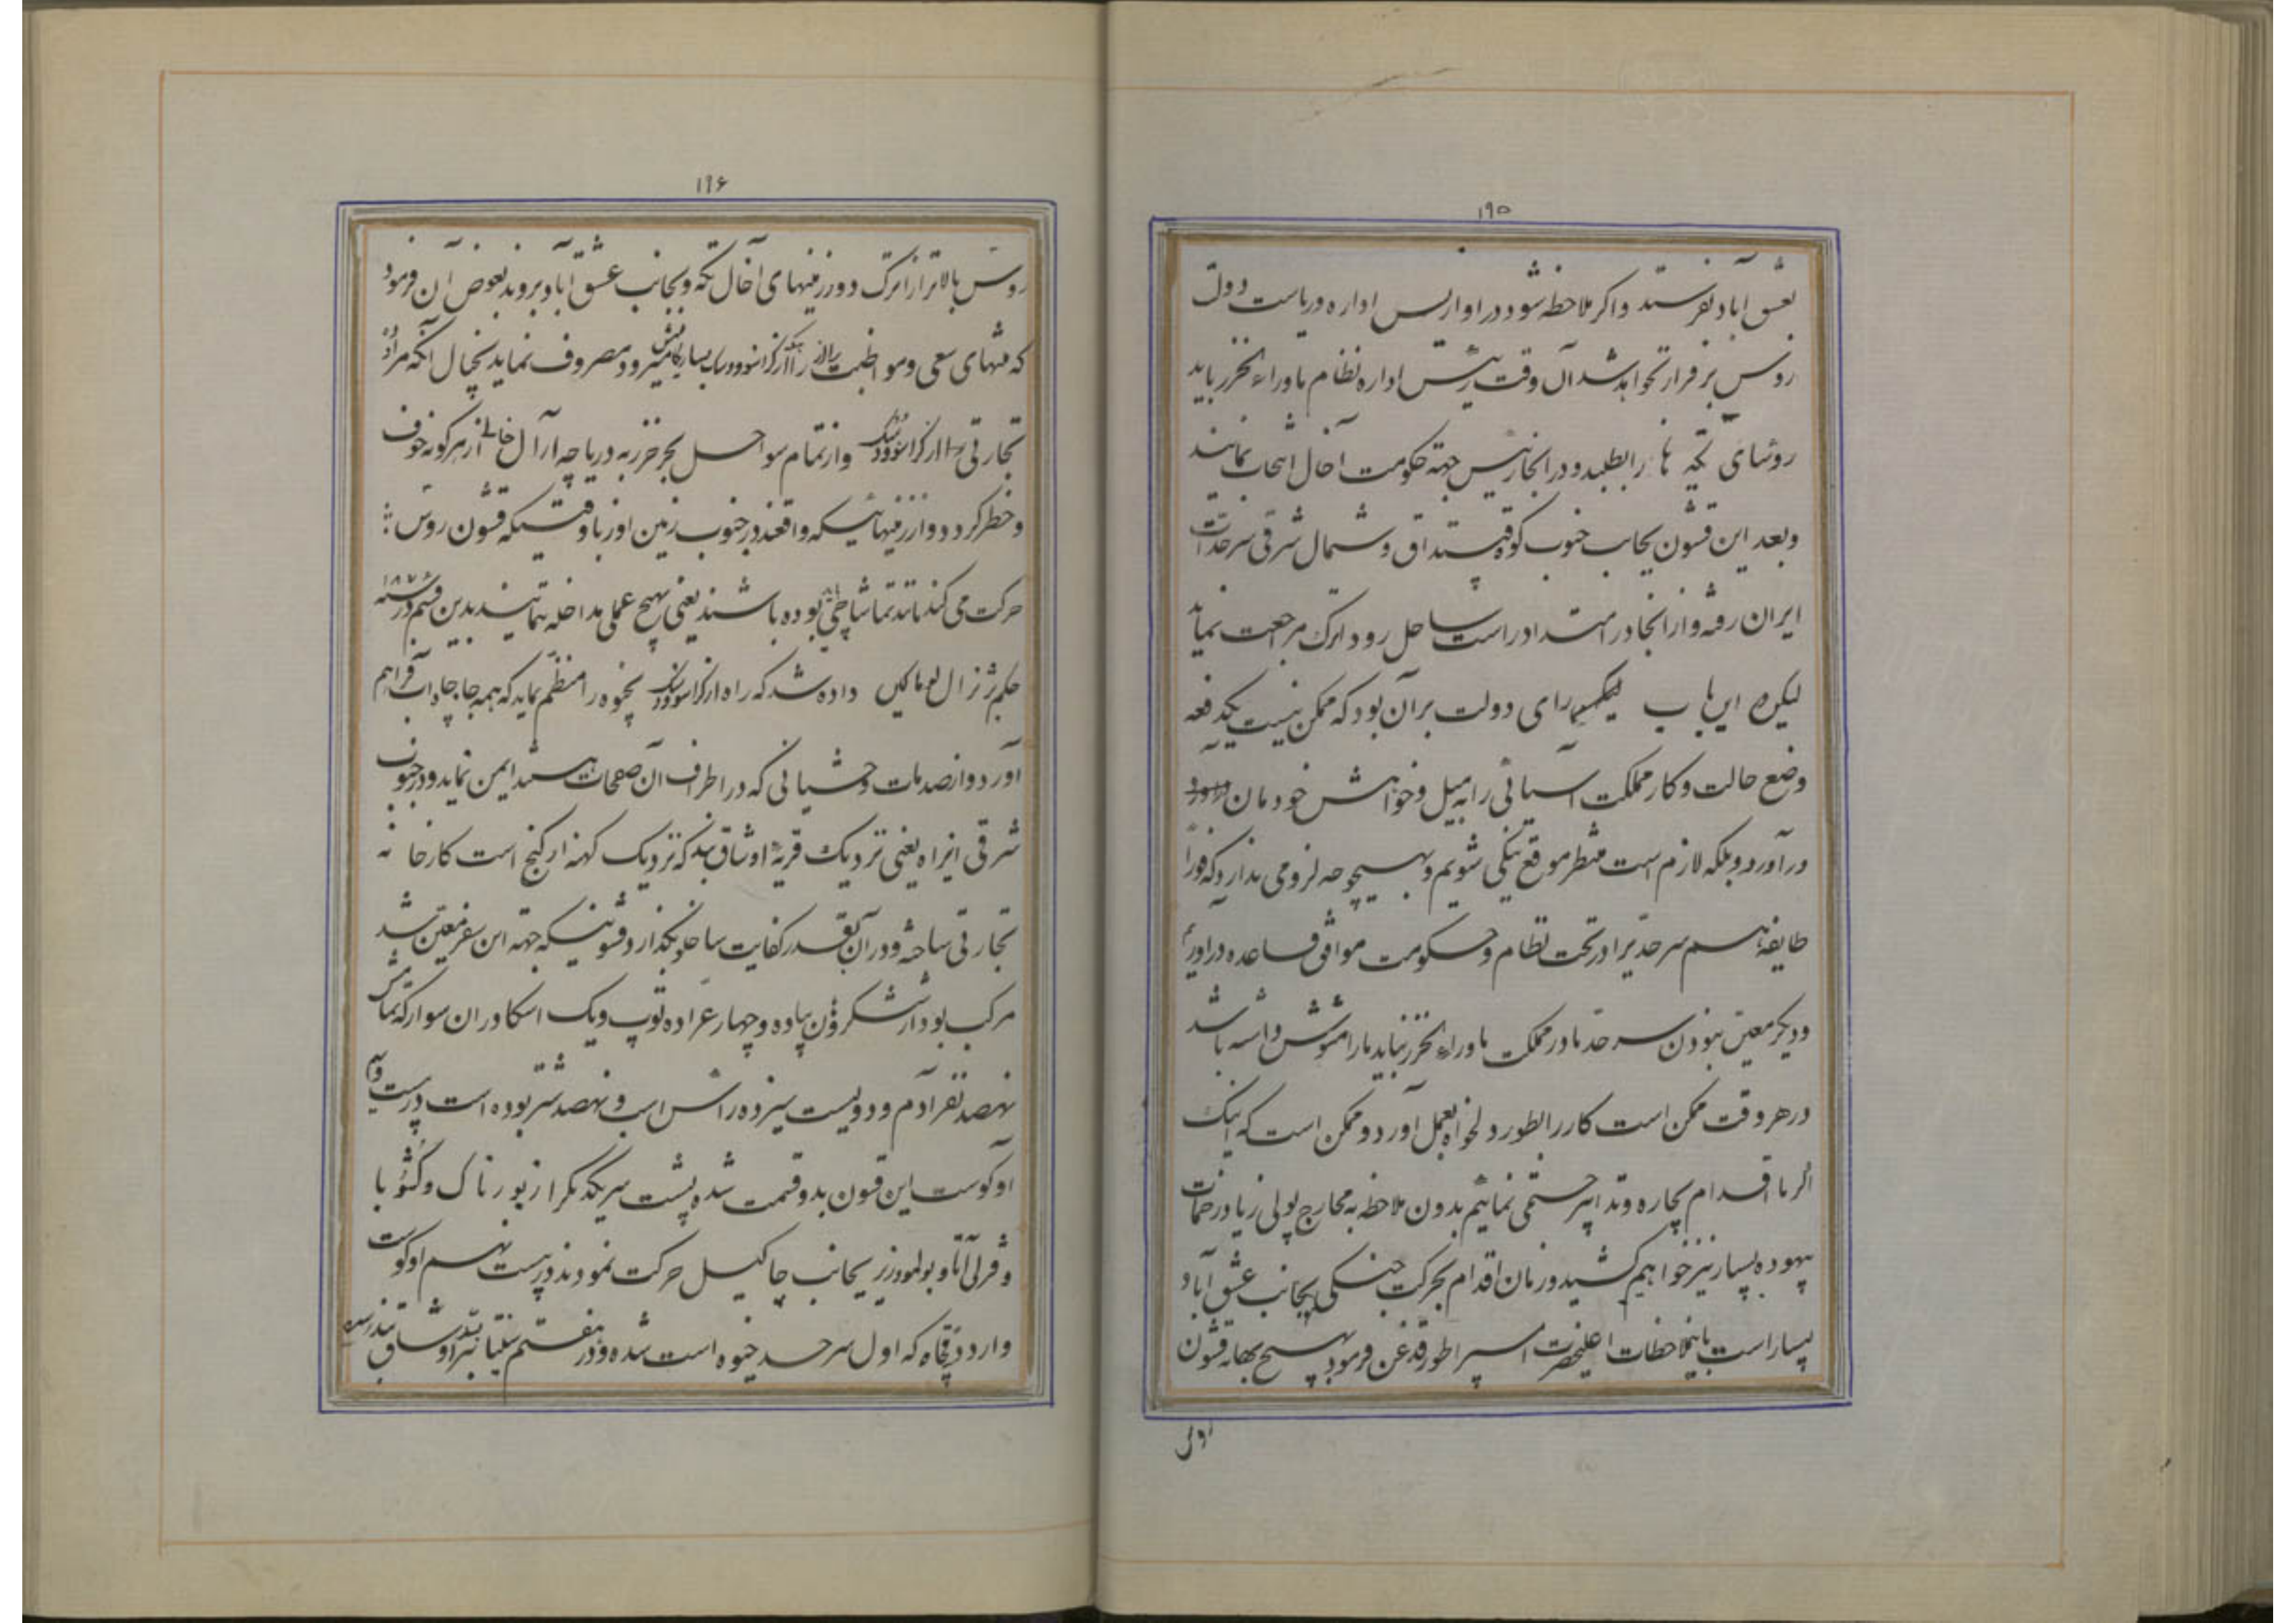 ۱۹۵
بعشق آباد نفرستند و اکر ملاحظه شود در اواریس اداره و ریاست دولت
روس برقرار نخواهد شد آن وقت رئیس اداره نظام ماوراء الخزر باید
روسای تکه ها را بطلبد و در انجا رئیس جهته حکومت آخال انتخاب نمایند
و بعد این قشون بجانب جنوب کوه کپت داق و شمال شرقی سرحدات
ایران رفته و از انجا در امتداد راست ساحل رود اترک مراجعت نماید
لیکن رای دولت بر آن بود که ممکن نیست یکدفعه
وضع حالت و کار مملکت آسیائی را به میل و خواهش خودمان
در آورد و بلکه لازم است منتظر موقع نیکی شویم و بهیچوجه لزومی ندارد که فوراً
طایفه هم سرحد را در تحت نظام و حکومت موافق قاعده در اوریم
و دیگر معین نبودن سرحد ما در مملکت ماوراء الخزر نباید ما را مشوش داشته باشد
در هر وقت ممکن است کار را بطور دلخواه بعمل آورد و ممکن است که اینک
اکر ما اقدام بچاره و تدابیر حتمی نمائیم بدون ملاحظه به مخارج پولی زیاد زحمات
بیهوده بسیار نیز خواهیم کشید و زمان اقدام بحرکت جنکی بجانب عشق آباد
بسیار است باینملاحظات اعلیحضرت امپراطور قدغن فرمود بهیچ بهانه قشون
روس
۱۹۶
روس بالاتر از اترک و در زمینهای آخال تکه و بجانب عشق آباد بروند بعوض آن فرمود
که منتهای سعی و مواظبت را مصروف نماید بخیال آنکه مراوده
تجارتی و از تمام سواحل بحر خزر به دریاچه آرال خالی از هر کونه خوف
و خطر کردد و از زمینهائیکه واقعند در جنوب زمین اوزبا وقتیکه قشون روس
حرکت می کند مانند تماشاچی بوده باشند یعنی بهیچ عملی مداخله ننمایند بدین قسم در سنه ۱۸۷۷
حکم بژنرال لوماکین داده شد که راه از کراسنوودسک بخیوه را منظم نماید که همه جا چاه آب فراهم
آورد و از صدمات وحشیانی که در اطراف آن صفحات هستند ایمن نماید و در جنوب
شرقی اینراه یعنی نزدیک قریه اوشاق بند که نزدیک کهنه ارکنج است کارخانه
تجارتی ساخته و در آن بقدر کفایت ساخلو بکذارد قشونیکه جهته این سفر معین شد
مرکب بود از شش کروه پیاده و چهار عراده توپ و یک اسکادران سوار که تمامش
نهصد نفر آدم و دویست سیزده راس اسب و نهصد شتر بوده است در بیست و یکم
اوکوست این قشون بدو قسمت شده پشت سر یکدیکر از بورناک و کشو با
و قزل آتا و بولمودزیر بجانب چاکیل حرکت نمودند در بیست نهم اوکوست
وارد دقچاه که اول سرحد خیوه است شده و در هفتم سنتیابر باوشاق بند